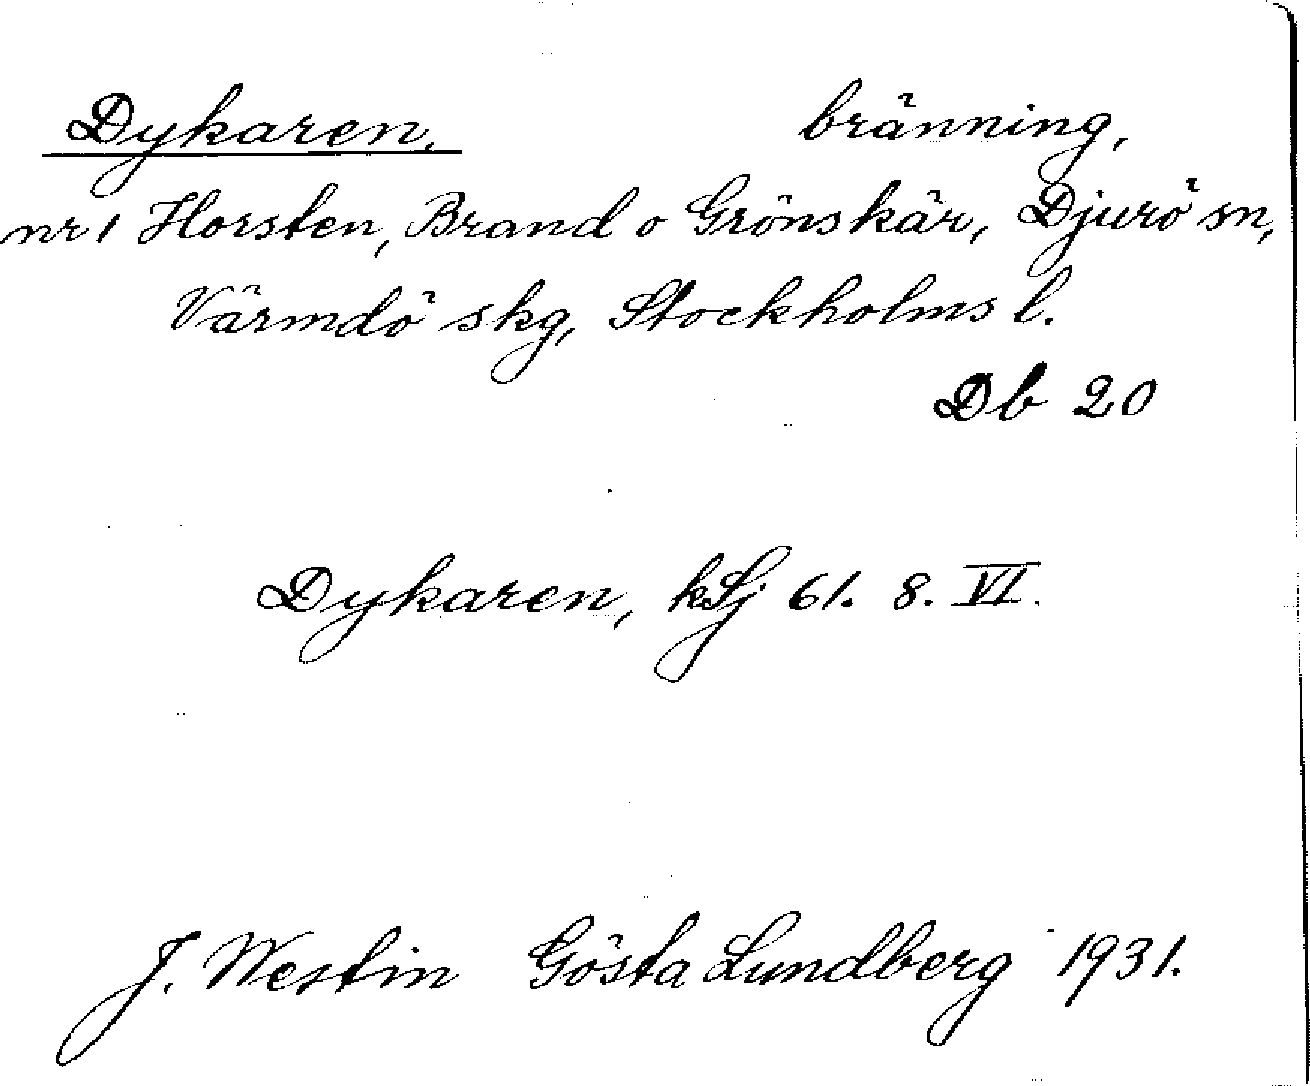 Dykaren. bränning,
nr 1 Horsten, Brand o Grönskär, Djurö sn,
Värmdö skg, Stockholms l.
Db 20
Dykaren, kSj 61. 8. VI.
J. Westin Gösta Lundberg 1931.